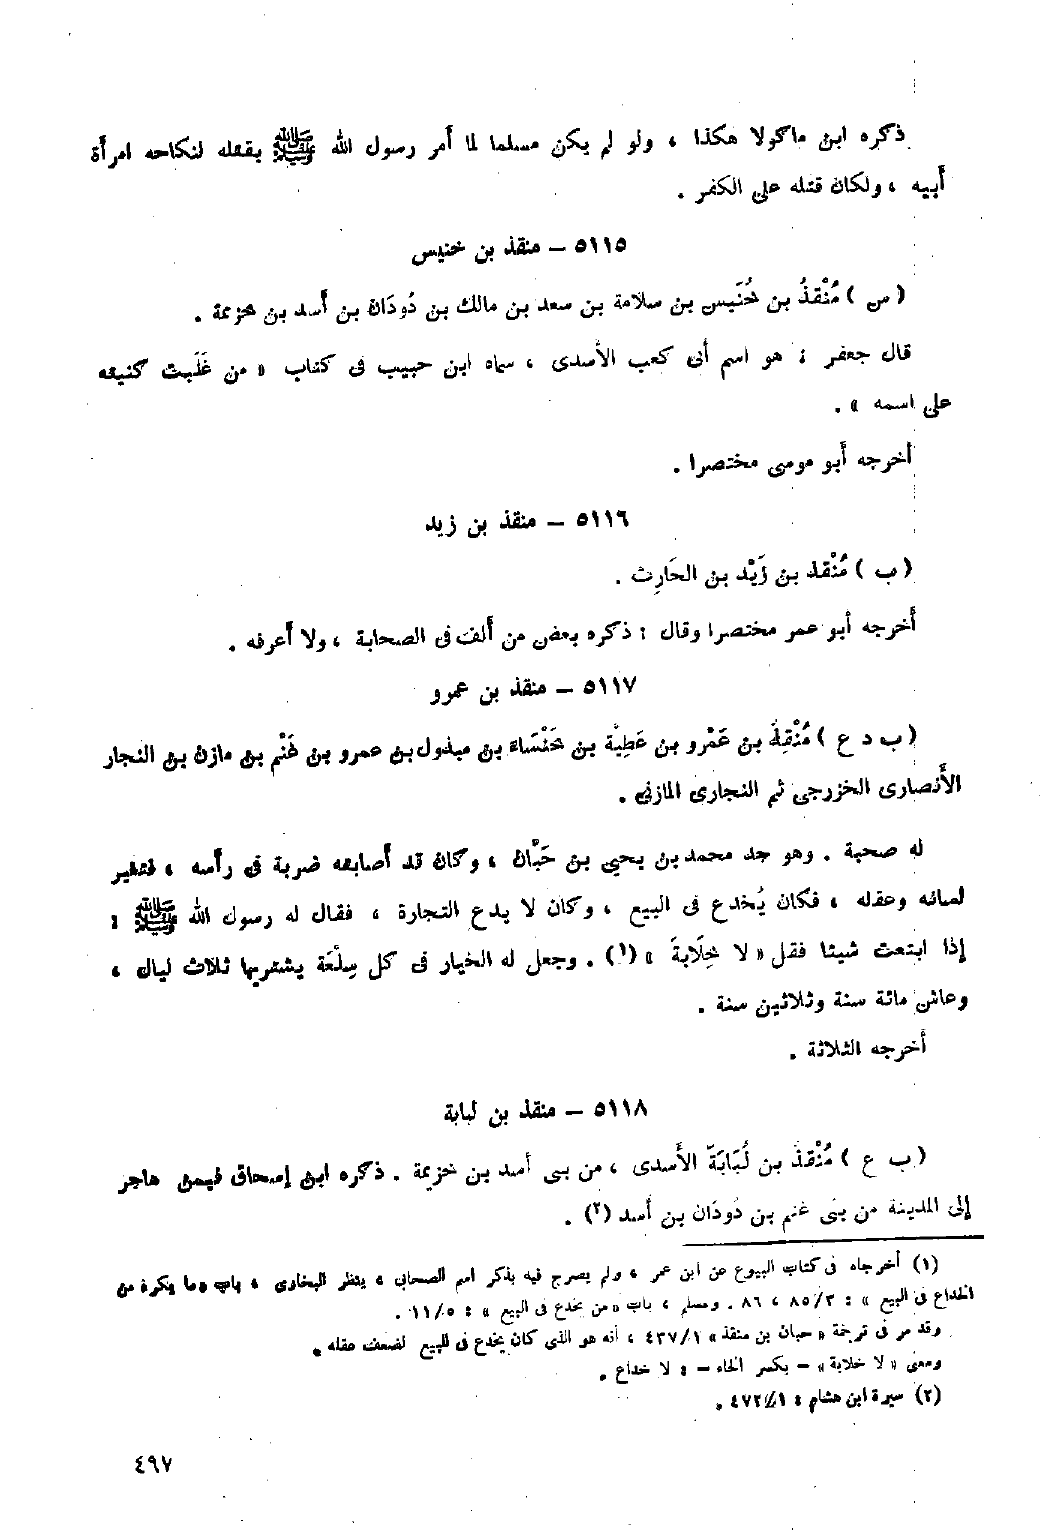 ذكره ابن ماكولا هكذا ، ولو لم يكن مسلما لما أمر رسول الله ﷺ بقتله لنكاحه امرأة
أبيه ، ولكان قتله على الكفر .
٥١١٥ – منقذ بن خنيس
( س ) مُنْقذُ بن خُنَيس بن سلامة بن سعد بن مالك بن دُودَان بن أسد بن خزيمة .
قال جعفر : هو اسم أبى كعب الأسدى ، سماه ابن حبيب فى كتاب « من غَلَبت كنيته
على اسمه » .
أخرجه أبو موسى مختصرا .
٥١١٦ – منقذ بن زيد
( ب ) مُنْقذ بن زَيْد بن الحَارِث .
أخرجه أبو عمر مختصرا وقال : ذكره بعض من ألف فى الصحابة ، ولا أعرفه .
٥١١٧ – منقذ بن عمرو
( ب د ع ) مُنْقِذُ بن عَمْرو بن عَطِيَّة بن خَنْسَاء بن مبذول بن عمرو بن غَنْم بن مازن بن النجار
الأنصارى الخزرجى ثم النجارى المازنى .
له صحبة . وهو جد محمد بن يحيى بن حَبَّان ، وكان قد أصابته ضربة فى رأسه ، فتغير
لسانه وعقله ، فكان يُخدع فى البيع ، وكان لا يدع التجارة ، فقال له رسول الله ﷺ :
إذا ابتعت شيئا فقل « لا خِلَابةَ » (١) . وجعل له الخيار فى كل سِلْعَة يشتريها ثلاث ليال ،
وعاش مائة سنة وثلاثين سنة .
أخرجه الثلاثة .
٥١١٨ – منقذ بن لبابة
( ب ع ) مُنْقذ بن لُبَابَةَ الأَسدى ، من بنى أسد بن خزيمة . ذكره ابن إسحاق فيمن هاجر
إلى المدينة من بنى غنم بن دُودَان بن أسد (٢) .
(١) أخرجاه فى كتاب البيوع عن ابن عمر ، ولم يصرح فيه بذكر اسم الصحابى ، ينظر البخارى ، باب « ما يكره من
الخداع فى البيع » : ٨٥/٣ ، ٨٦ . ومسلم ، باب « من يخدع فى البيع » : ١١/٥ .
وقد مر فى ترجمة « حبان بن منقذ » ٤٣٧/١ ، أنه هو الذى كان يخدع فى البيع لضعف عقله .
ومعنى « لا خلابة » – بكسر الخاء – : لا خداع .
(٢) سيرة ابن هشام : ٤٧٢/١ .
٤٩٧